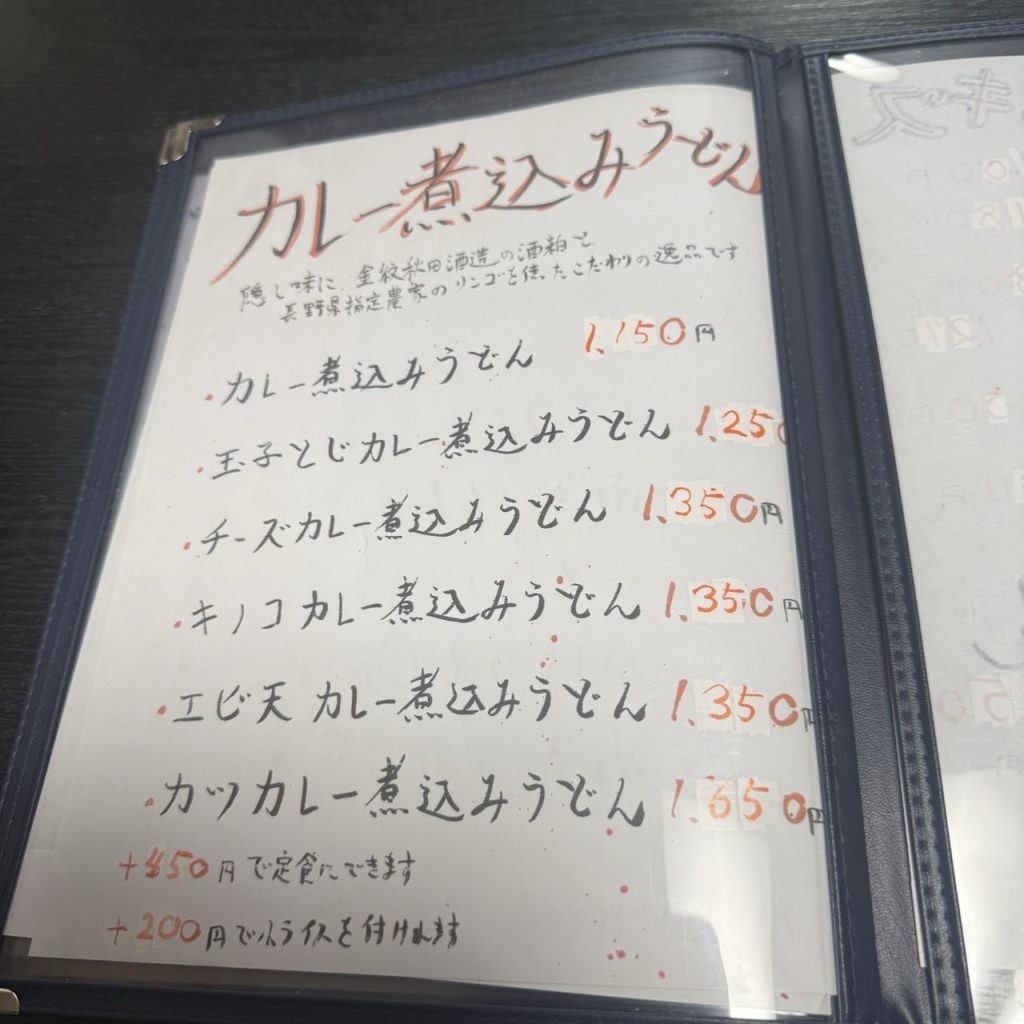 カレー煮込みうどん
隠し味に、金紋秋田酒造の酒粕と、
長野県指定農家のリンゴを使ったこだわりの逸品です
・カレー煮込みうどん 1,150円
・玉子とじカレー煮込みうどん 1,250
・チーズカレー煮込みうどん 1,350円
・キノコカレー煮込みうどん 1,350円
・エビ天カレー煮込みうどん 1,350円
・カツカレー煮込みうどん 1,650円
+450円で定食にできます
+200円で小ライスを付けれます
キッズ